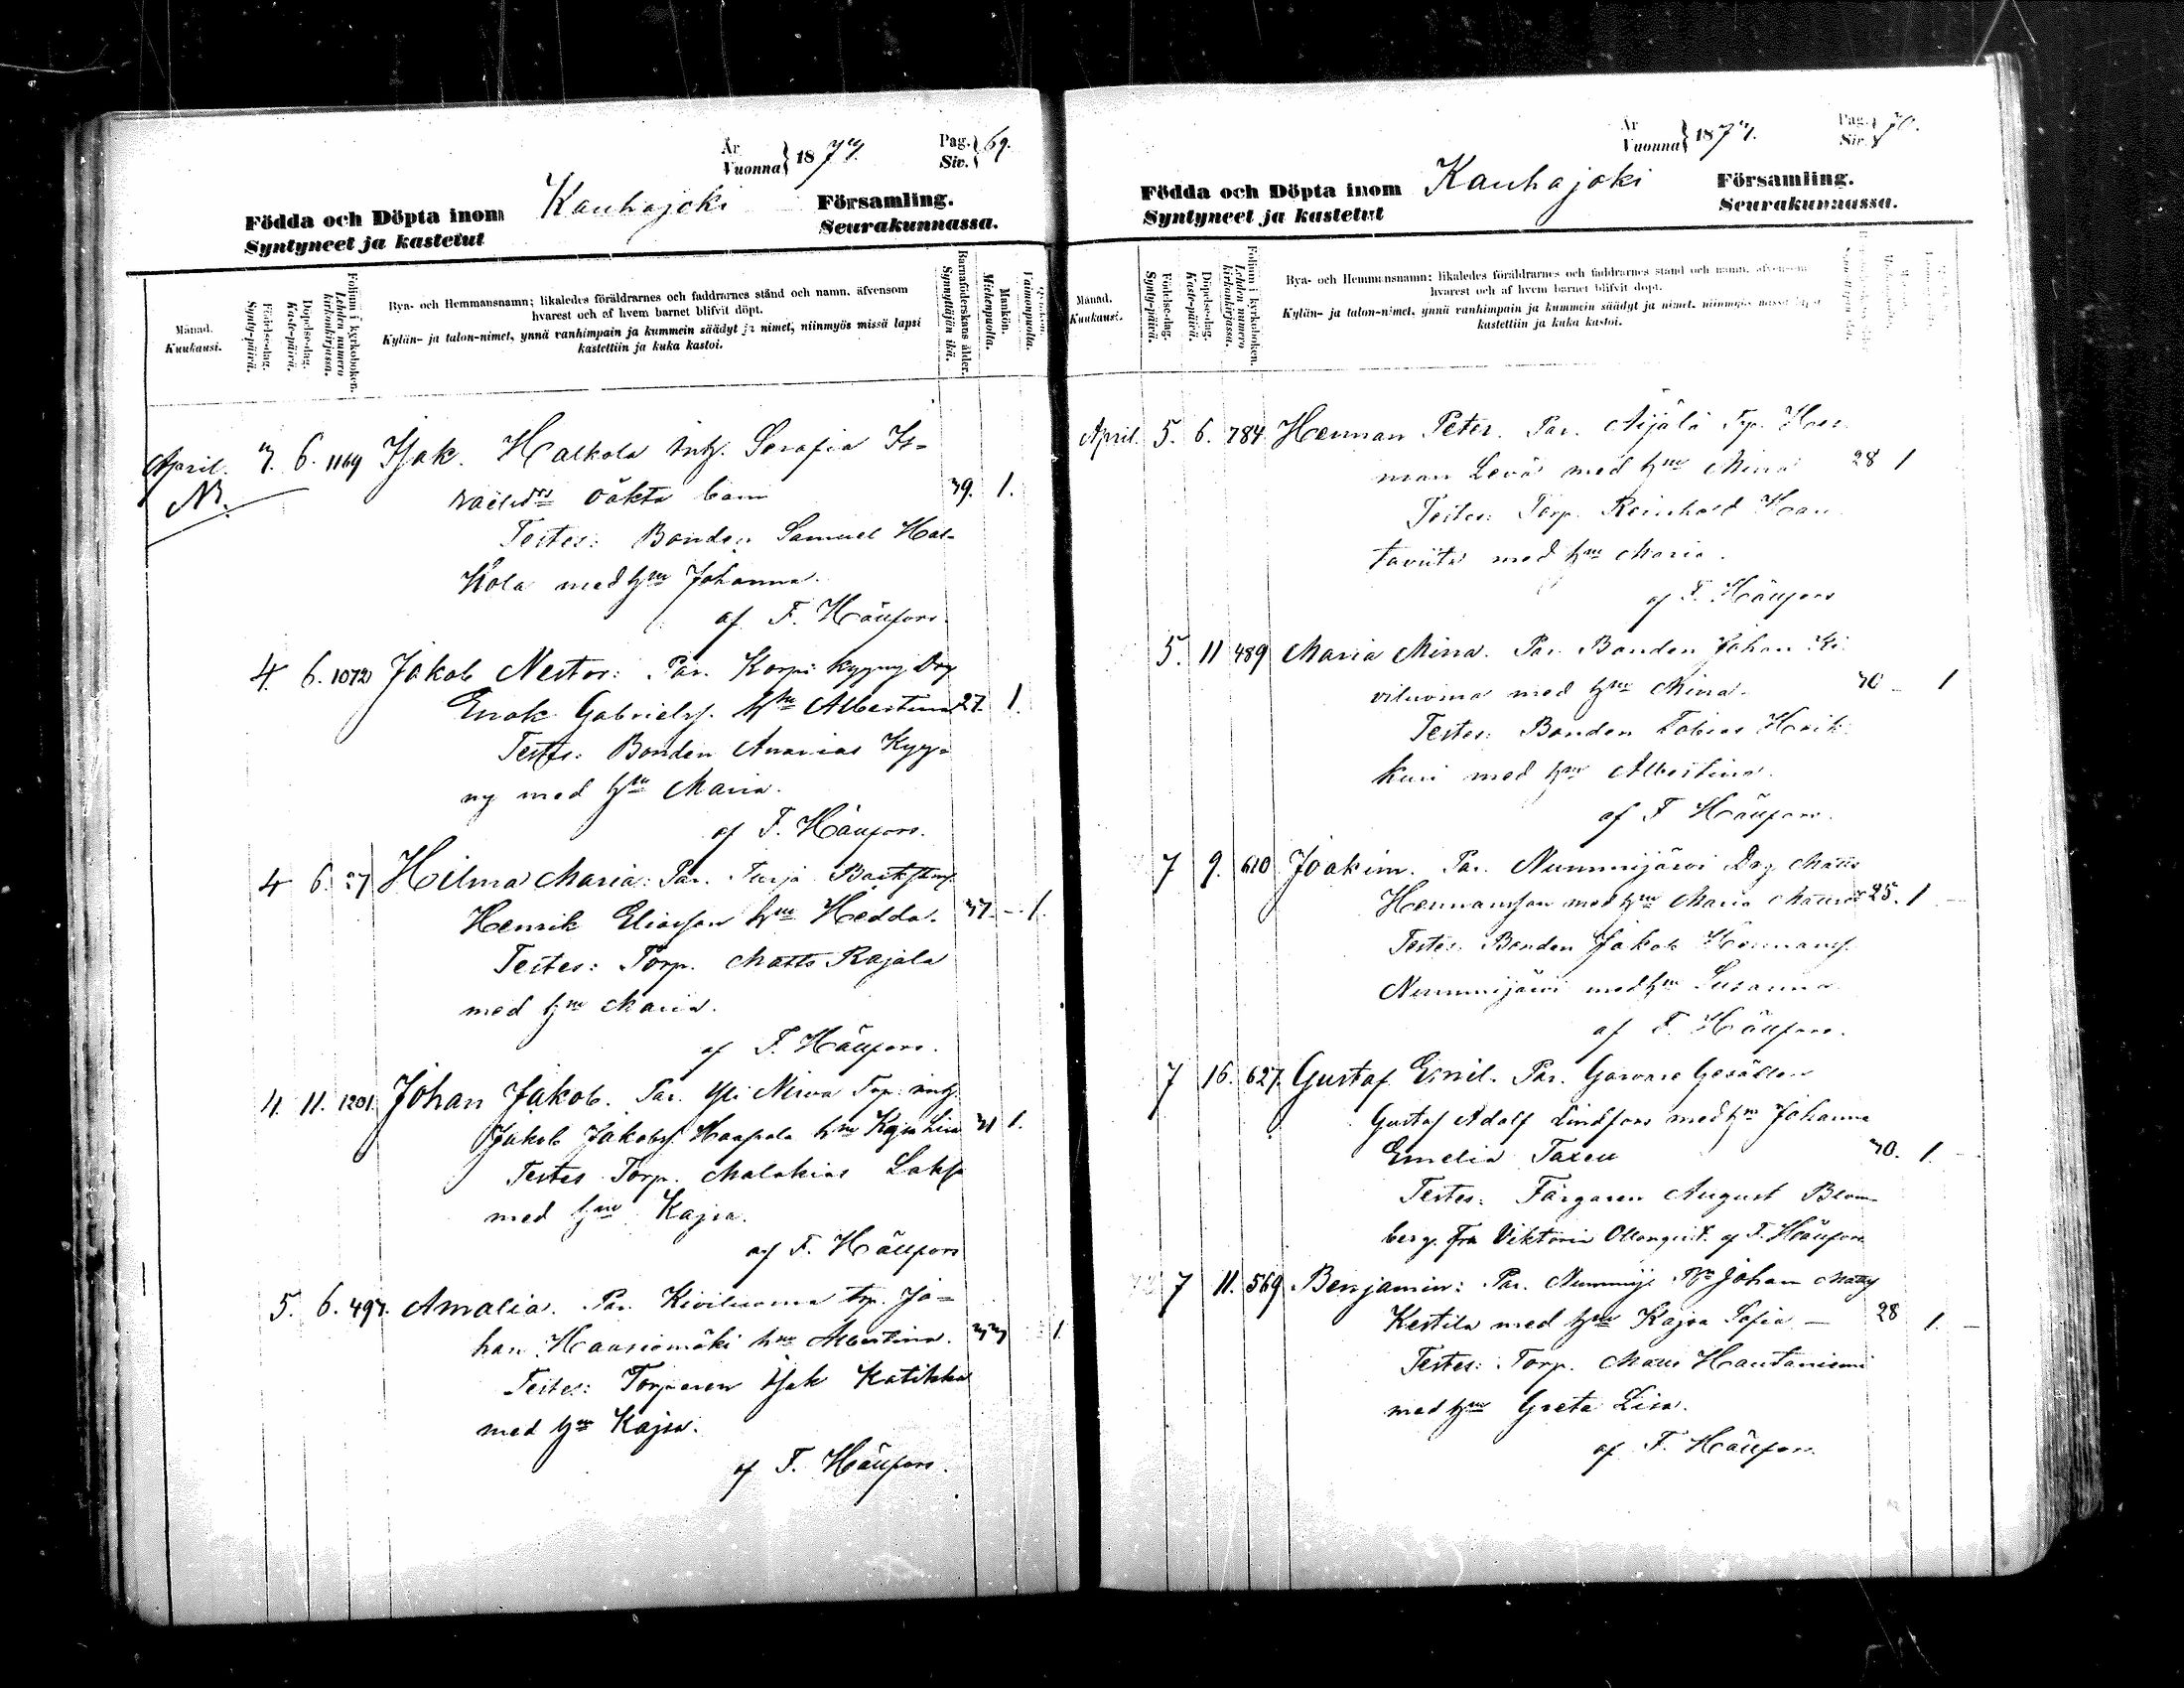 År
Vuonna } 1877.
Pag.
Siv. } 69.
Födda och Döpta inom Kauhajoki Församling.
Syntyneet ja kastetut Seurakunnassa.
Månad.
Kuukausi.
Födelse-dag.
Synty-päivä.
Döpelse-dag.
Kaste-päivä.
Folium i kyrkoboken.
Lehden numero kirkonkirjassa.
Bya- och Hemmansnamn; likaledes föräldrarnes och faddrarnes stånd och namn, äfvensom
hvarest och af hvem barnet blifvit döpt.
Kylän- ja talon-nimet, ynnä vanhimpain ja kummein säädyt ja nimet, niinmyös missä lapsi
kastettiin ja kuka kastoi.
Barnaföderskans ålder.
Synnyttäjän ikä.
Mankön.
Miehenpuolia.
Qvinkön.
Vaimonpuolia.
April. 6. 1169 Isak. Halkola inh. Serafia Is-
raelsdr oäkta barn 39. 1.
Testes: Bonden Samuel Hal-
kola med hu Johanna.
af F. Häufors.
4. 6. 1072 Jakob Nestor: Par. Korpi kyyny Drg
Enok Gabrielsf. hu Albertina 27. 1.
Testes: Bonden Ananias Kyy-
ny med hu Maria.
af F. Häufors.
4 6. 27 Hilma Maria: Par. Turja
Henrik Eliasson hu Hedda. 37. – 1.
Testes: Torp. Matts Rajala
med hu Maria.
af F. Häufors.
4. 11. 1201. Johan Jakob. Par. Yli Nirva Torp. inh.
Jakob Jakobsf. Haapala hu Kajsa Lisa 31 1.
Testes Torp. Malakias
med hu Kajsa.
af F. Häufors
5. 6. 497. Amalia. Par. Kiviluoma trp. Jo-
han Haasiomäki hu Albertina. 33 1.
Testes: Torparen Isak Katikka
med hu Kajsa.
af F. Häufors.
År
Vuonna } 1877.
Pag.
Siv. } 70.
Födda och Döpta inom Kauhajoki Församling.
Syntyneet ja kastetut Seurakunnassa.
Månad.
Kuukausi.
Födelse-dag.
Synty-päivä.
Döpelse-dag.
Kaste-päivä.
Folium i kyrkoboken.
Lehden numero kirkonkirjassa.
Bya- och Hemmansnamn; likaledes föräldrarnes och faddrarnes stånd och namn, äfvensom
hvarest och af hvem barnet blifvit döpt.
Kylän- ja talon-nimet, ynnä vanhimpain ja kummein säädyt ja nimet, niinmyös missä lapsi
kastettiin ja kuka kastoi.
April. 5. 6. 784. Herman Peter. Par. Äijälä Trp. Her-
man Levä med hu Mina 28 1
Testes: Torp. Reinhold Hau-
taviita med hu Maria.
af F. Häufors
5. 11 489 Maria Mina. Par. Bonden Johan Ki-
viluoma med hu Mina. 30 – 1
Testes: Bonden Tobias Heik-
kuri med hu Albertina.
af F Häufors.
7 9. 610 Joakim. Par. Nummijärvi Drg Matts
Hermansson med hu Maria 25. 1 –
Testes. Bonden Jakob Hermansf.
Nummijärvi med hu Susanna
af F. Häufors.
7 16. 627. Gustaf Emil. Par. Garvare Gesällen
Gustaf Adolf Lindfors med hu Johanna
Emelia Taxell 30. 1. –
Testes: Färgaren August Blom-
berg. Frk Viktoria af F. Häufors
7 11. 569 Benjamin: Par. Nummij. Johan Mattsf
Kestilä med hu Kajsa Sofia – 28 1. –
Testes: Torp. Matts Hautaniemi
med hu Greta Lisa.
af F. Häufors.